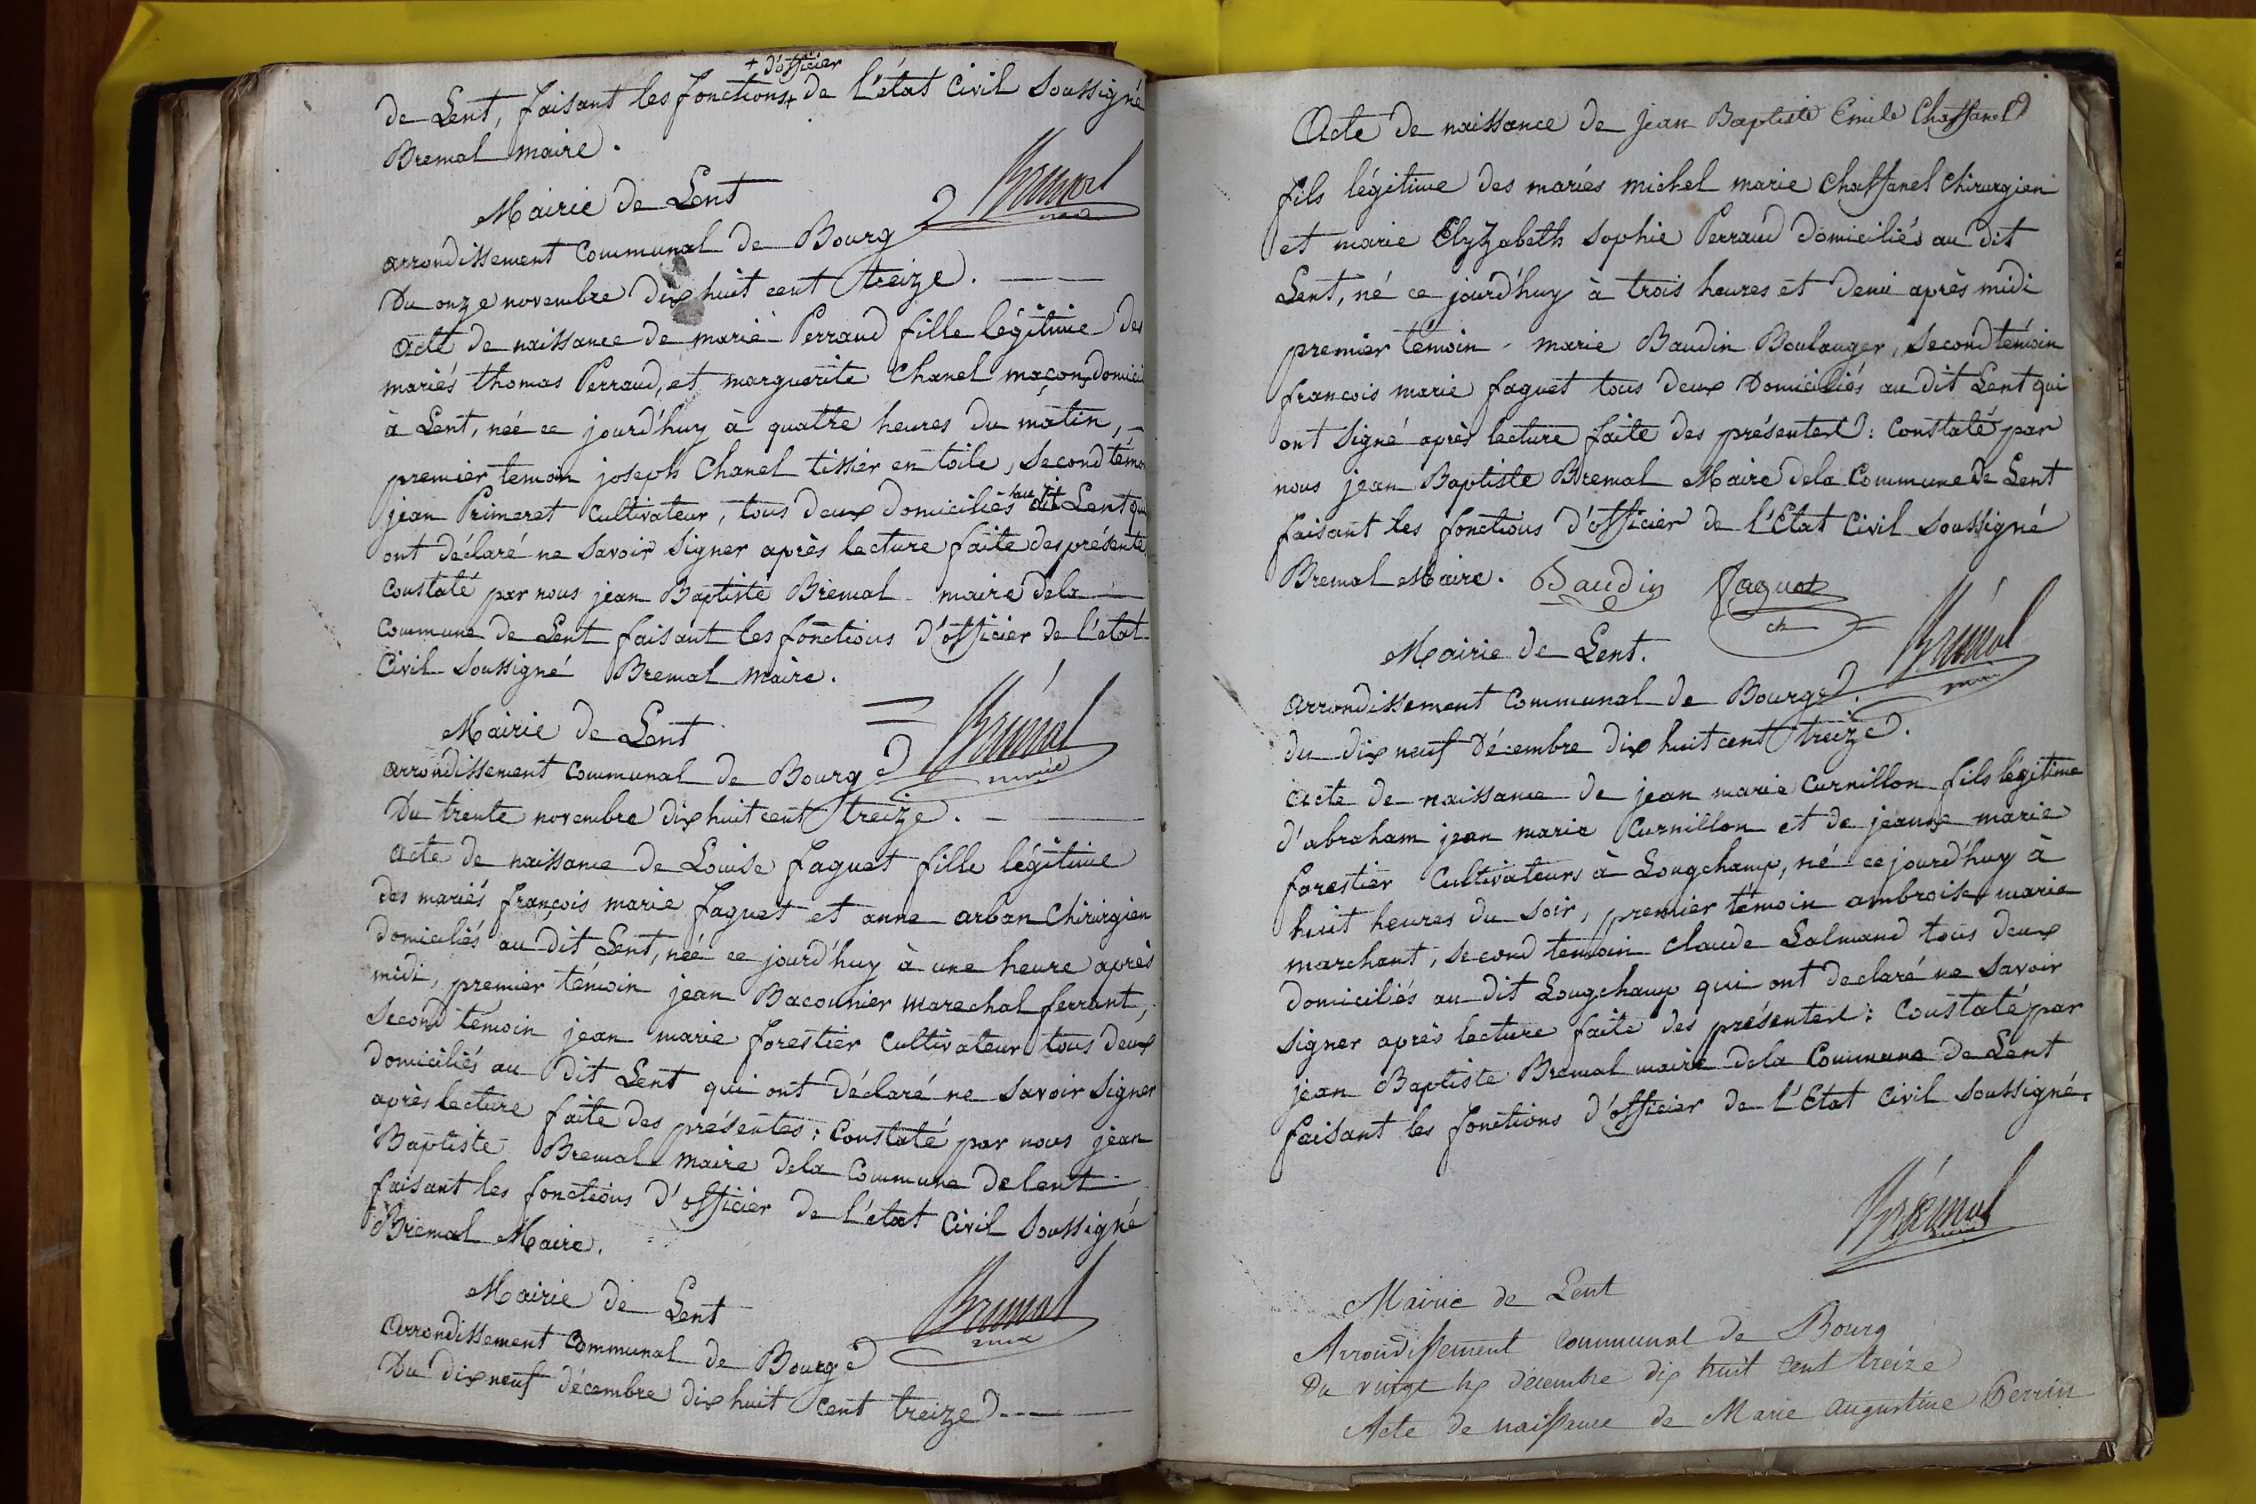 + d'officier
de Lent, faisant les fonctions + de l'état Civil Soussigné
Bremal maire.
Bremal
Mairie de Lent
arrondissement Communal de Bourg
Du onze novembre dix huit cent treize.
Acte de naissance de marie Perraud fille légitime des
mariés thomas Perraud, et marguerite Chanel maçon, domicil
à Lent, née ce jourd'huy à quatre heures du matin,
premier temoin joseph Chanel tissier en toile, second témo
jean Primeret Cultivateur, tous deux domiciliés au dit Lent qui
ont déclaré ne Savoir Signer après lecture faite des présente
Constaté par nous jean Baptiste Bremal maire dela
Commune de Lent faisant les fonctions d'officier de l'état
Civil Soussigné Bremal maire.
Bremal
maire
Mairie de Lent
arrondissement Communal de Bourg
Du trente novembre dix huit cent treize.
Acte de naissance de Louise faguet fille légitime
des mariés françois marie faguet et anne arban Chirirgien
domiciliés au dit Lent, née ce jourd'huy à une heure après
midi, premier témoin jean Bacounier marechal ferrant,
Second témoin jean marie forestier Cultivateur tous deux
domiciliés au dit Lent qui ont déclaré ne Savoir Signer
après lecture faite des présentes : Constaté par nous jean
Baptiste Bremal maire dela Commune de lent
faisant les fonctions d'officier de l'état Civil Soussigné
Bremal Maire.
Bremal
Mairie de Lent
Arrondissement Communal de Bourg
Du dix neuf décembre dix huit cent treize
Acte de naissance de jean Baptiste Emile Chassanel
fils légitime des mariés michel marie Chassanel Chirurgien
et marie Elyzabeth Sophie Perraud domiciliés au dit
Lent, né ce jourd'huy à trois heures et demi après midi
premier témoin - marie Baudin Boulanger, second témoin
francois marie faguet tous deux Domiciliés au dit Lent qui
ont signé après lecture faite des présentes : Constaté par
nous jean Baptiste Bremal Maire dela Commune De Lent
faisant les fonctions d'officier de l'Etat Civil Soussigné
Bremal Maire. Baudin Faguet
Bremal
maire
Mairie de Lent.
Arrondissement Communal de Bourg
du dix neuf Décembre dix huit cent treize.
Acte de naissance de jean marie Curnillon fils légitime
d'abraham jean marie Curnillon et de jeanne marie
forestier Cultivateurs à Longchamp, né ce jourd'huy à
huit heures du soir, premier témoin ambroise marie
marchant, second temoin Claude Lalmand tous deux
domiciliés au dit Longchamp qui ont declaré ne savoir
signer après lecture faite des présentes : Constaté par
jean Baptiste Bremal maire dela Commune de Lent
faisant les fonctions d'officier de l'Etat Civil soussigné.
Brémal
Mairie de Lent
Arrondissement communal de Bourg
Du vingt six décembre dix huit cent treize
Acte de naissance de Marie augustine Perrin